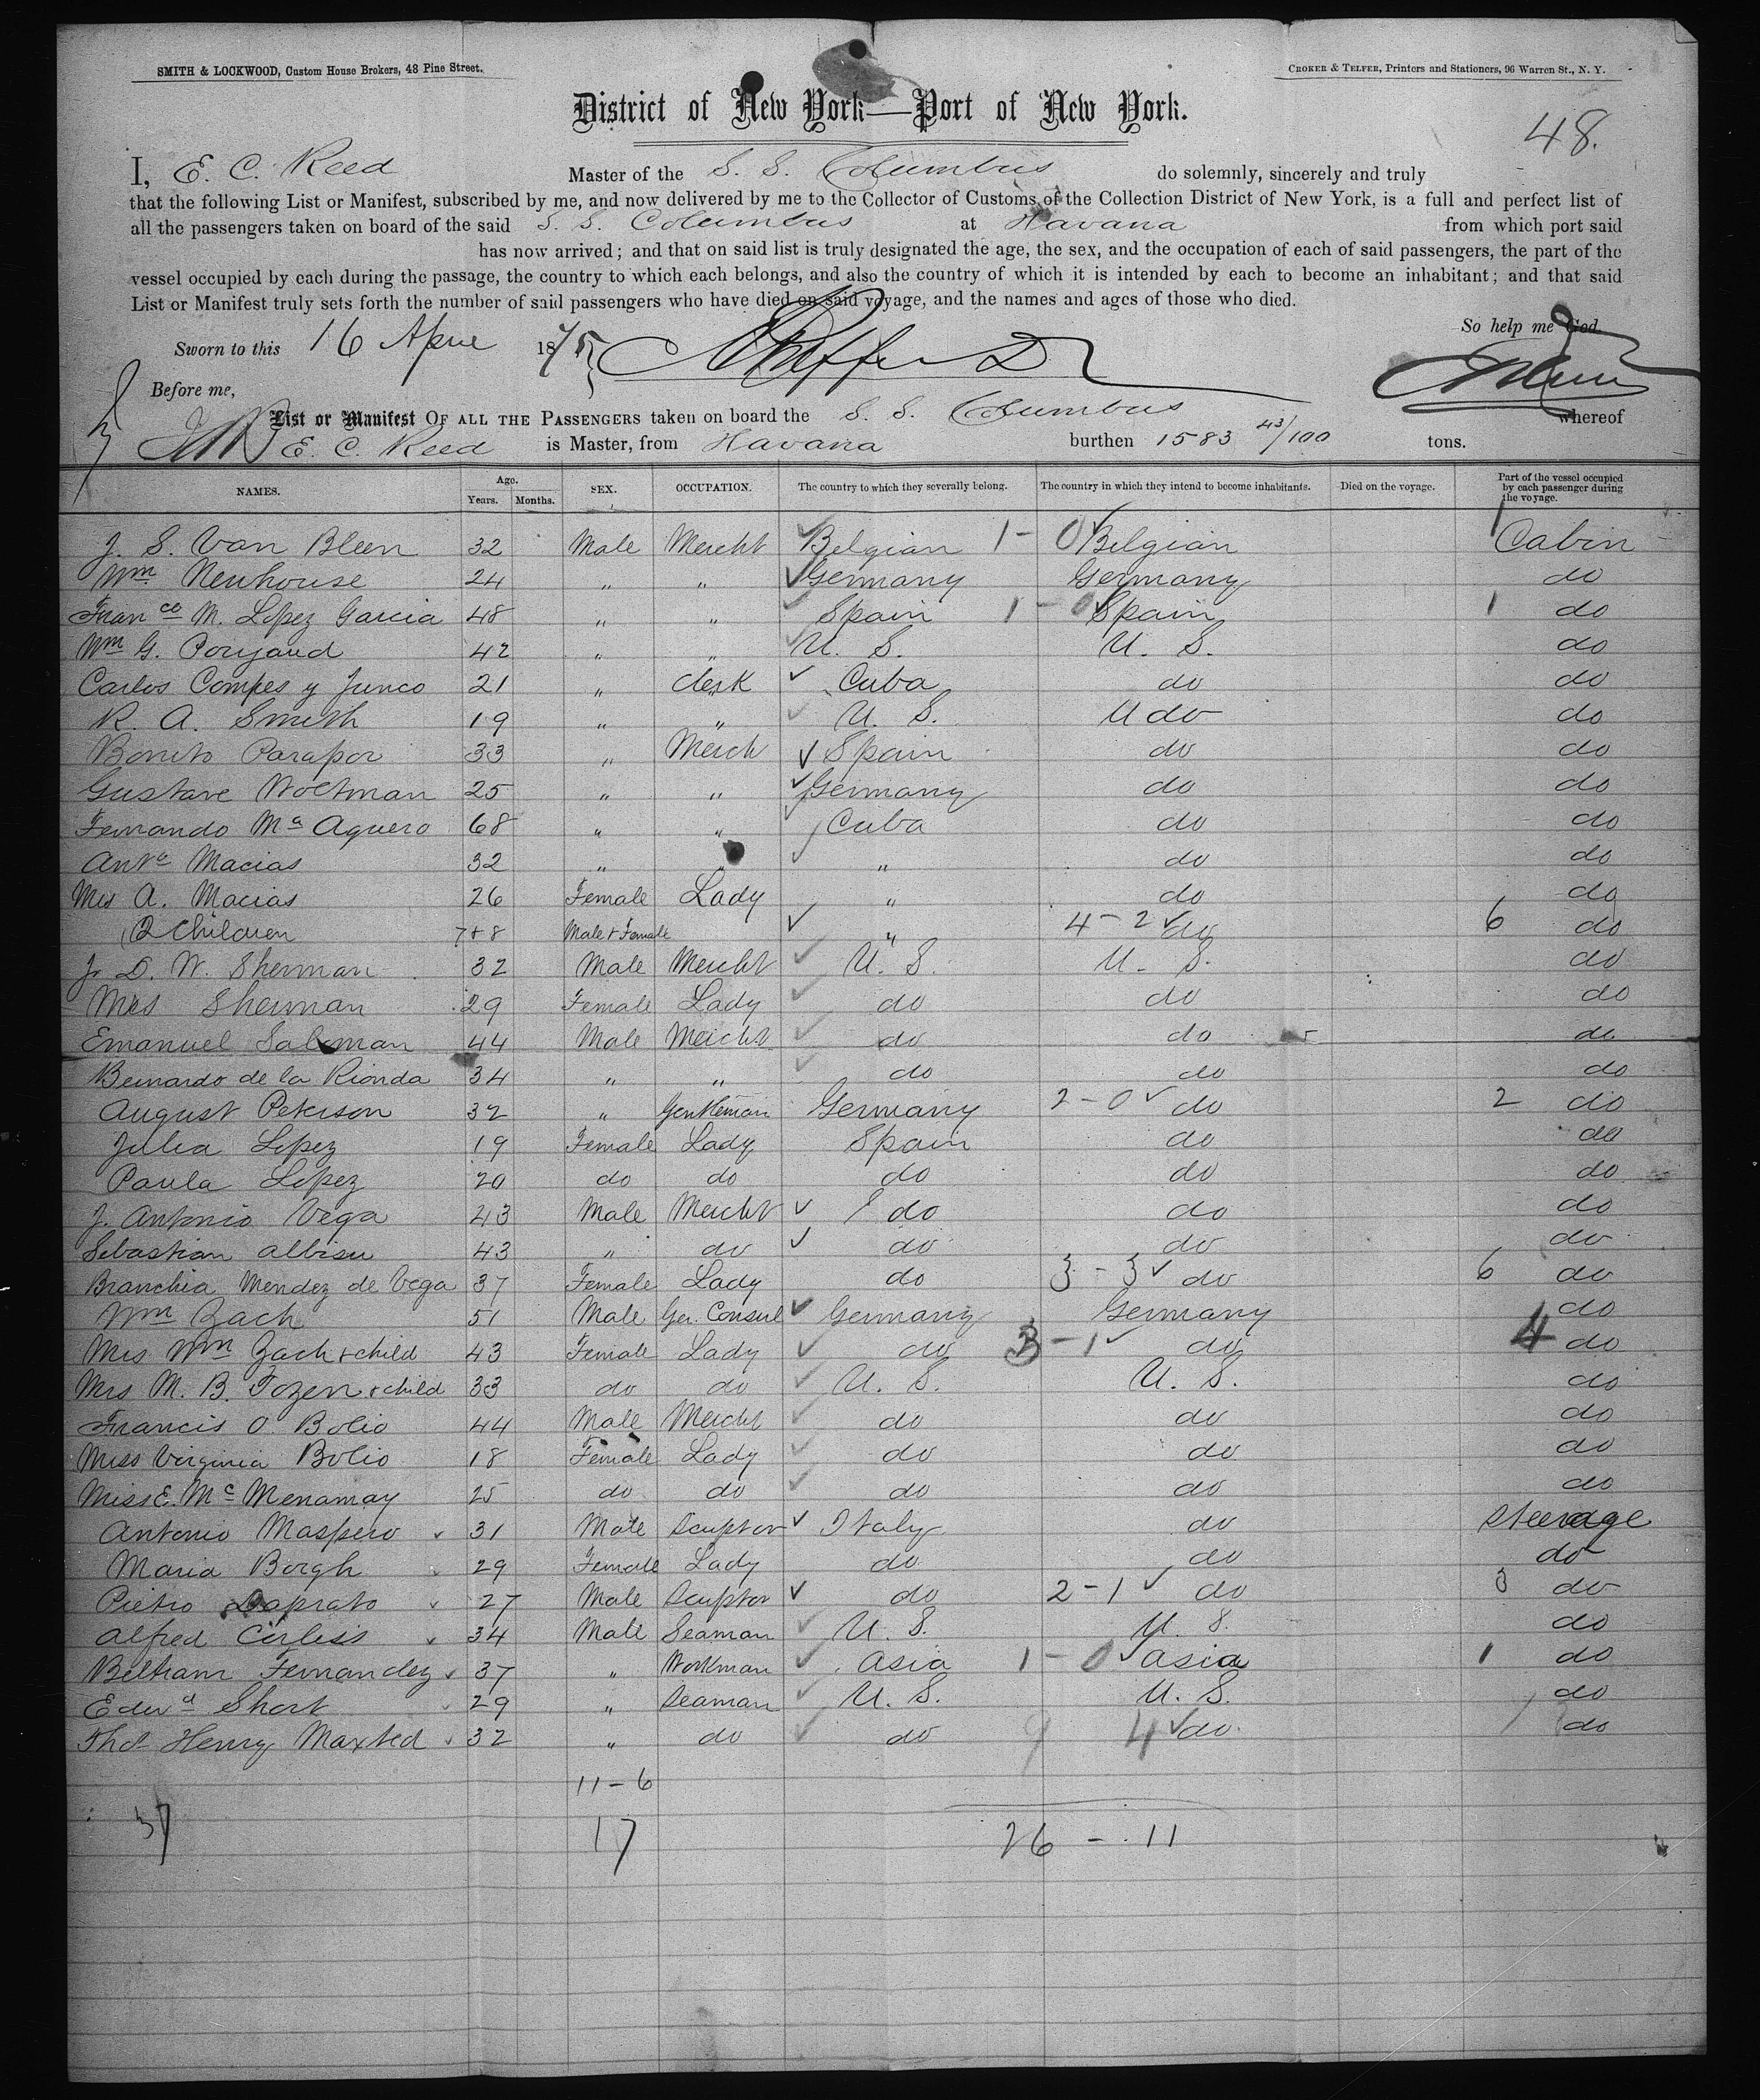 SMITH & LOCKWOOD, Custom House Brokers, 48 Pine Street.
CROKER & TELFER, Printers and Stationers, 96 Warren St., N. Y.
District of New York—Port of New York.
48.
I, E. C. Reed Master of the S. S. Columbus do solemnly, sincerely and truly
that the following List or Manifest, subscribed by me, and now delivered by me to the Collector of Customs of the Collection District of New York, is a full and perfect list of
all the passengers taken on board of the said S. S. Columbus at Havana from which port said
has now arrived; and that on said list is truly designated the age, the sex, and the occupation of each of said passengers, the part of the
vessel occupied by each during the passage, the country to which each belongs, and also the country of which it is intended by each to become an inhabitant; and that said
List or Manifest truly sets forth the number of said passengers who have died on said voyage, and the names and ages of those who died.
So help me God.
Sworn to this 16 April 1875
Before me,
List or Manifest OF ALL THE PASSENGERS taken on board the S. S. Columbus whereof
E. C. Reed is Master, from Havana burthen 1583 43/100 tons.
NAMES. Age. Years. Months. SEX. OCCUPATION. The country to which they severally belong. The country in which they intend to become inhabitants. Died on the voyage. Part of the vessel occupied by each passenger during the voyage.
J. S. Van Bleen 32 Male Mercht Belgian 1 - 0 Belgian 1 Cabin
Wm Neuhouse 24 " " Germany Germany do
Franco M. Lopez Garcia 48 " " Spain 1 - 0 Spain 1 do
Wm G. Poujaud 42 " " U. S. U. S. do
Carlos Compes y Junco 21 " clerk Cuba do do
R. A. Smith 19 " " U. S. U do do
Bonito Parapor 33 " Merch Spain do do
Gustave Woltman 25 " " Germany do do
Fernando Ma Aguero 68 " " Cuba do do
Anto Macias 32 " " " do do
Mrs A. Macias 26 Female Lady " do do
2 Children 7+8 Male + Female " 4 - 2 do 6 do
J. D. W. Sherman 32 Male Mercht U. S. U. S. do
Mrs Sherman 29 Female Lady do do do
Emanuel Salzman 44 Male Mercht do do do
Bernardo de la Rionda 34 " " do do do
August Peterson 32 " Gentleman Germany 2 - 0 do 2 do
Julia Lopez 19 Female Lady Spain do do
Paula Lopez 20 do do do do do
J. Antonio Vega 43 Male Mercht do do do
Sebastian Albisu 43 " do do do do
Branchia Mendez de Vega 37 Female Lady do 3 - 3 do 6 do
Wm Zach 51 Male Ger. Consul Germany Germany do
Mrs Wm Zach + child 43 Female Lady do 3 - 1 do 4 do
Mrs M. B. Tozen + child 33 do do U. S. U. S. do
Francis O. Bolio 44 Male Mercht do do do
Miss Virginia Bolio 18 Female Lady do do do
Miss E. Mc Menamay 25 do do do do do
Antonio Maspero 31 Male Sculptor Italy do Steerage
Maria Borgh 29 Female Lady do do do
Pietro Daprato 27 Male Sculptor do 2 - 1 do 3 do
Alfred Corliss 34 Male Seaman U. S. U. S. do
Beltram Fernandez 37 " Workman Asia 1 - 0 Asia 1 do
Edwd Short 29 " Seaman U. S. U. S. do
Thos Henry Maxted 32 " do do 9 4 do do
11 - 6
37 17 26 - 11